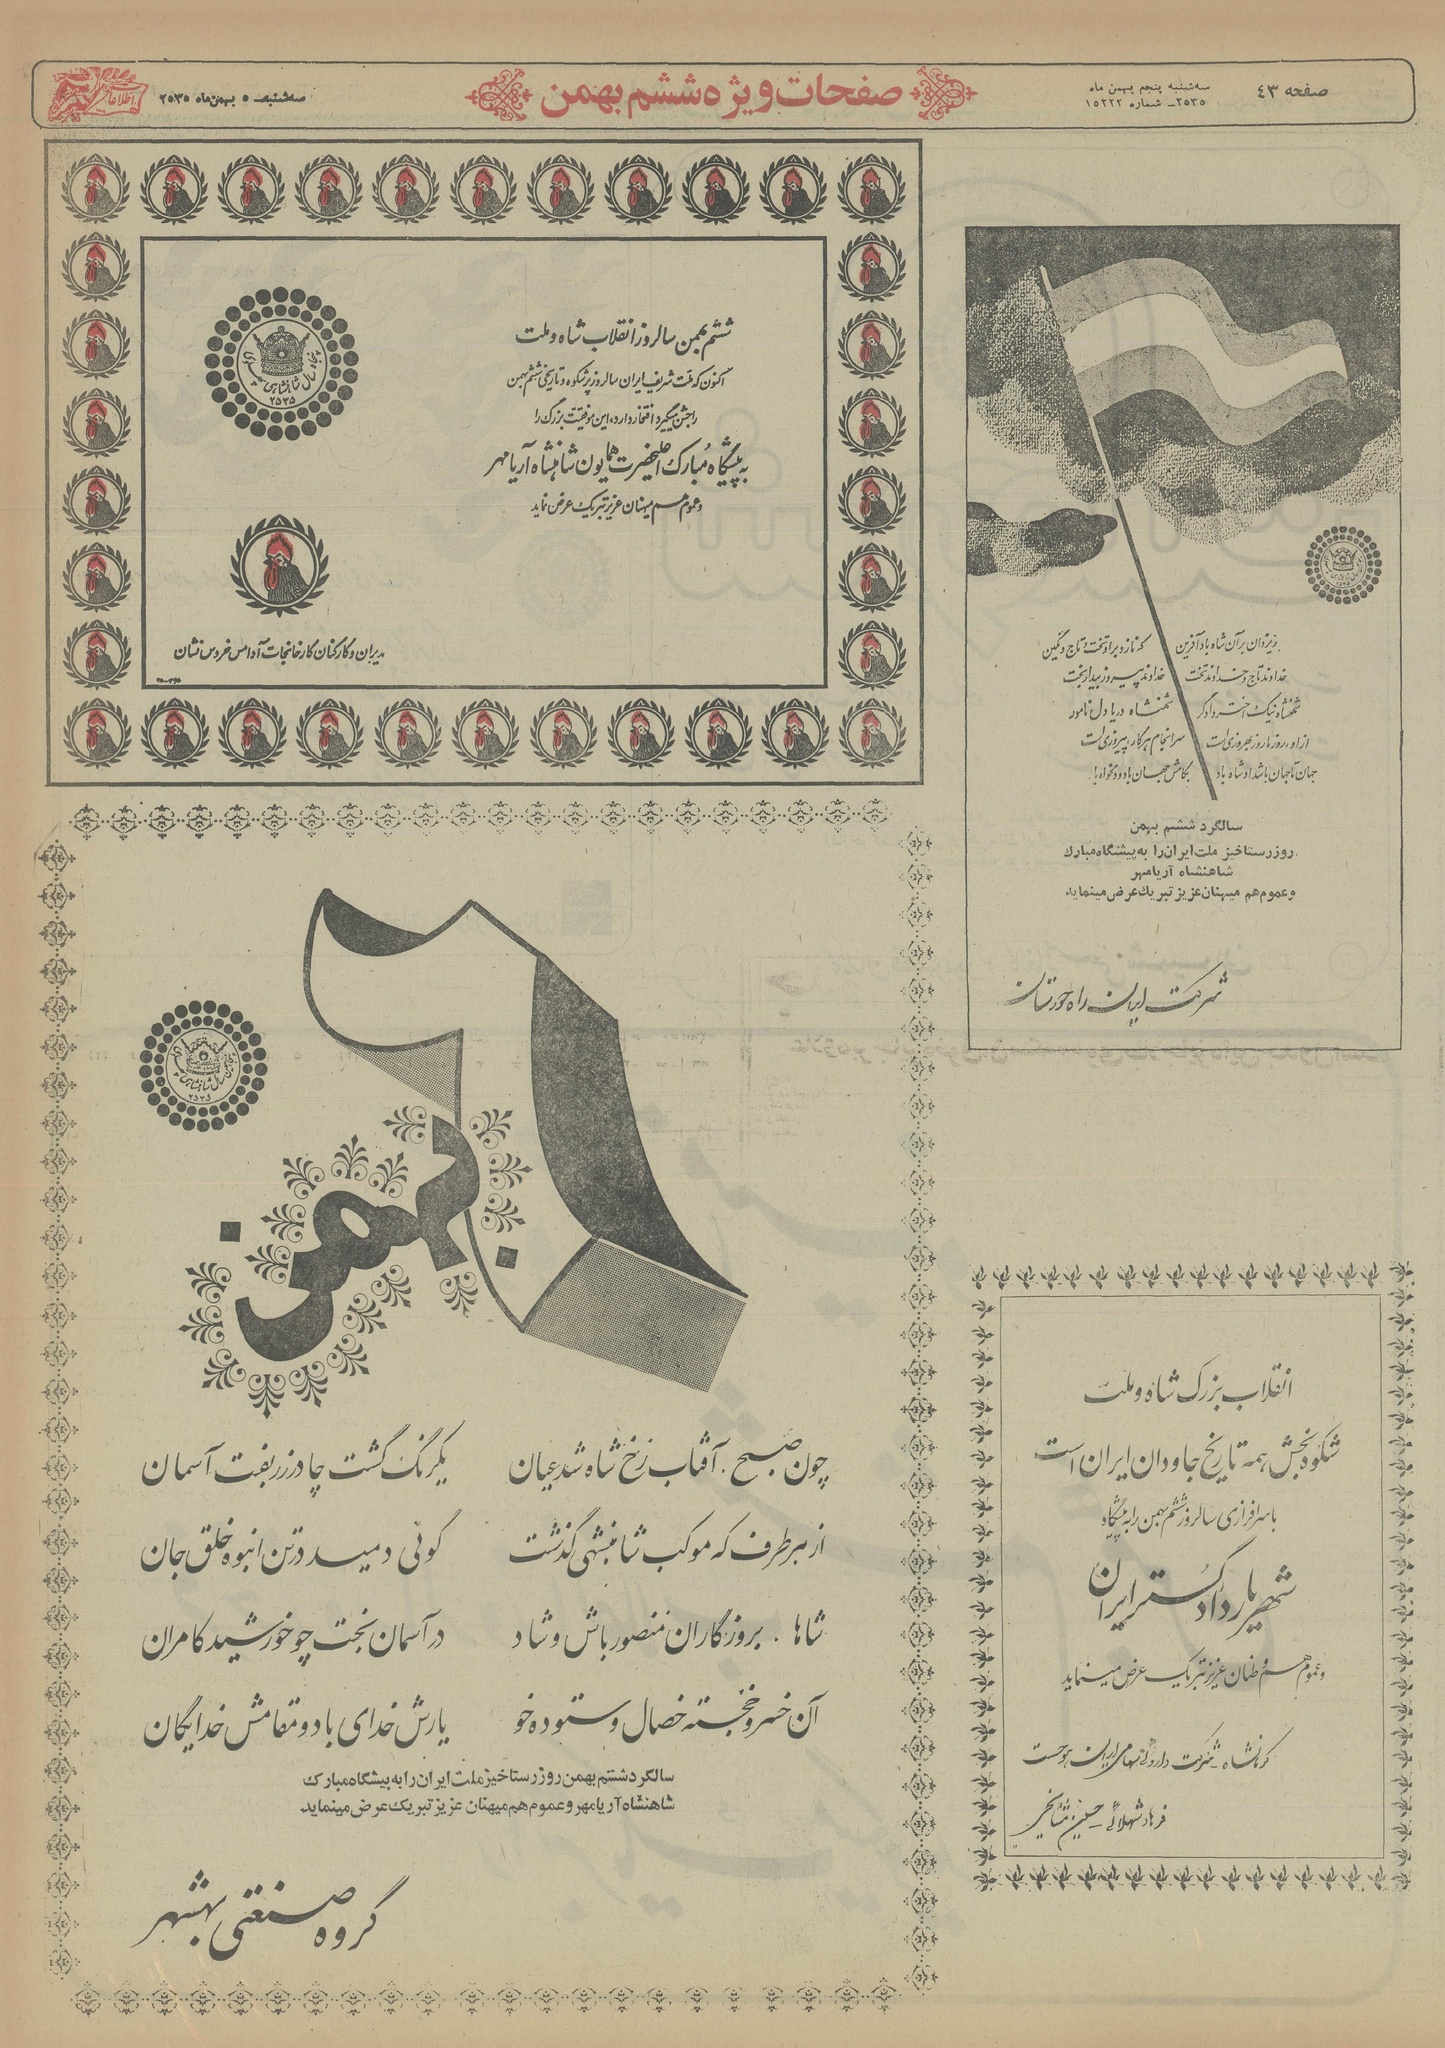 صفحه ۴۳
سه‌شنبه پنجم بهمن ماه
۲۵۳۵ـ شماره ۱۵۲۲۲
صفحات ویژه ششم بهمن
سه‌شنبه ـ ۵ بهمن‌ماه ۲۵۳۵
اطلاعات
ششم بهمن سالروز انقلاب شاه و ملت
اکنون که ملت شریف ایران سالروز پرشکوه و تاریخی ششم بهمن
را جشن میگیرد افتخار دارد، این موفقیت بزرگ را
به پیشگاه مبارک اعلیحضرت همایون شاهنشاه آریامهر
و عموم هم میهنان عزیز تبریک عرض نماید
مدیران و کارکنان کارخانجات آدامس خروس نشان
پنجاه سال شاهنشاهی پهلوی
۲۵۳۵
ز یزدان بر آن شاه باد آفرین
که نازد بر او تخت و تاج و نگین
خداوند تاج و خداوند تخت
خداوند پیروز بیدار بخت
شهنشاه نیک اختر دادگر
شهنشاه دریا دل نامور
از او، روز ما روز بهروزی است
سرانجام هر کار، پیروزی است
جهان تا جهان باشد او شاه باد
بکامش جهان باد و دلخواه باد
سالگرد ششم بهمن
روز رستاخیز ملت ایران را به پیشگاه مبارک
شاهنشاه آریامهر
و عموم هم میهنان عزیز تبریک عرض مینماید
شرکت ایران راه خوزستان
۶ بهمن
پنجاه سال شاهنشاهی پهلوی
۲۵۳۵
چون صبح . آفتاب رخ شاه شد عیان
یکرنگ گشت چادر زربفت آسمان
از هر طرف که موکب شاهنشهی گذشت
گوئی دمید در تن انبوه خلق جان
شاها . بروزگاران منصور باش و شاد
در آسمان بخت چو خورشید کامران
آن خسرو خجسته خصال و ستوده خو
یارش خدای باد و مقامش خدایگان
سالگرد ششم بهمن روز رستاخیز ملت ایران را به پیشگاه مبارک
شاهنشاه آریامهر و عموم هم میهنان عزیز تبریک عرض مینماید
گروه صنعتی بهشهر
انقلاب بزرگ شاه و ملت
شکوه بخش همه تاریخ جاودان ایران است
با سرافرازی سالروز ششم بهمن را به پیشگاه
شهریار دادگستر ایران
و عموم هم وطنان عزیز تبریک عرض مینماید
کرمانشاه ـ شرکت داروئی سهامی ایران هوخست
فرهاد شهلائی ـ حسین مشایخی